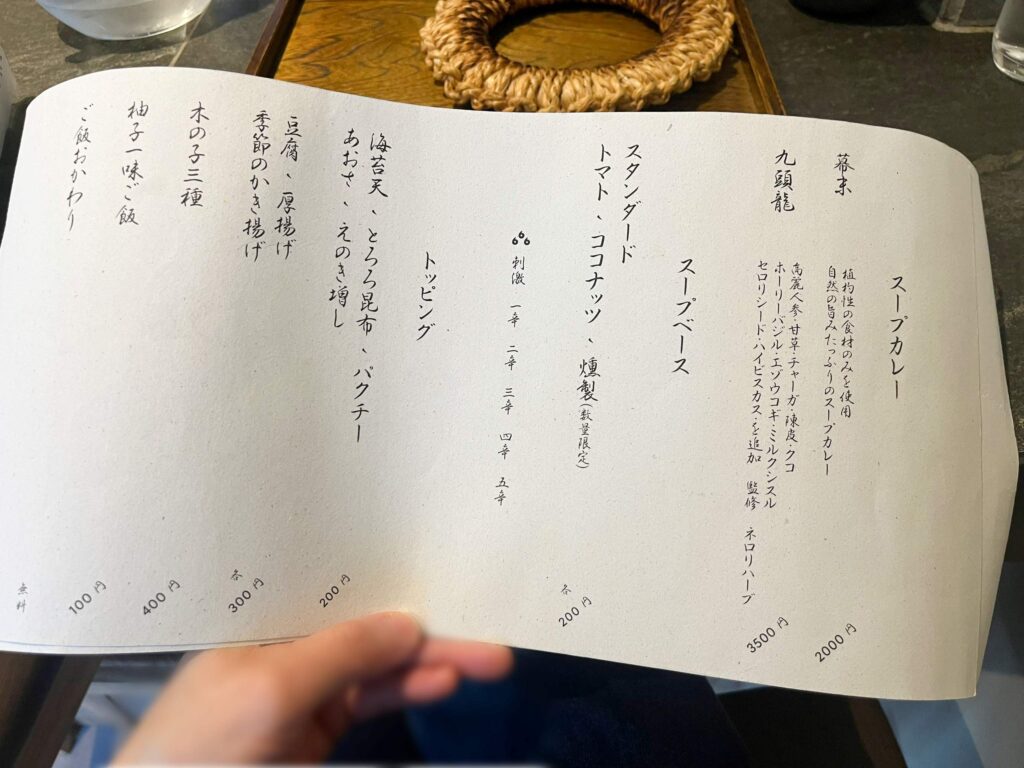 スープカレー
幕末
植物性の食材のみを使用
自然の旨みたっぷりのスープカレー
2000円
九頭龍
高麗人参・甘草・チャーガ・陳皮・クコ
ホーリーバジル・エゾウコギ・ミルクシスル
セロリシード・ハイビスカス・を追加 監修 ネロリハーブ
3500円
スープベース
スタンダード
トマト、ココナッツ、燻製(数量限定)
各200円
刺激 一辛 二辛 三辛 四辛 五辛
トッピング
海苔天、とろろ昆布、パクチー
あおさ、えのき増し
200円
豆腐、厚揚げ
季節のかき揚げ
各300円
木の子三種
400円
柚子一味ご飯
100円
ご飯おかわり
無料